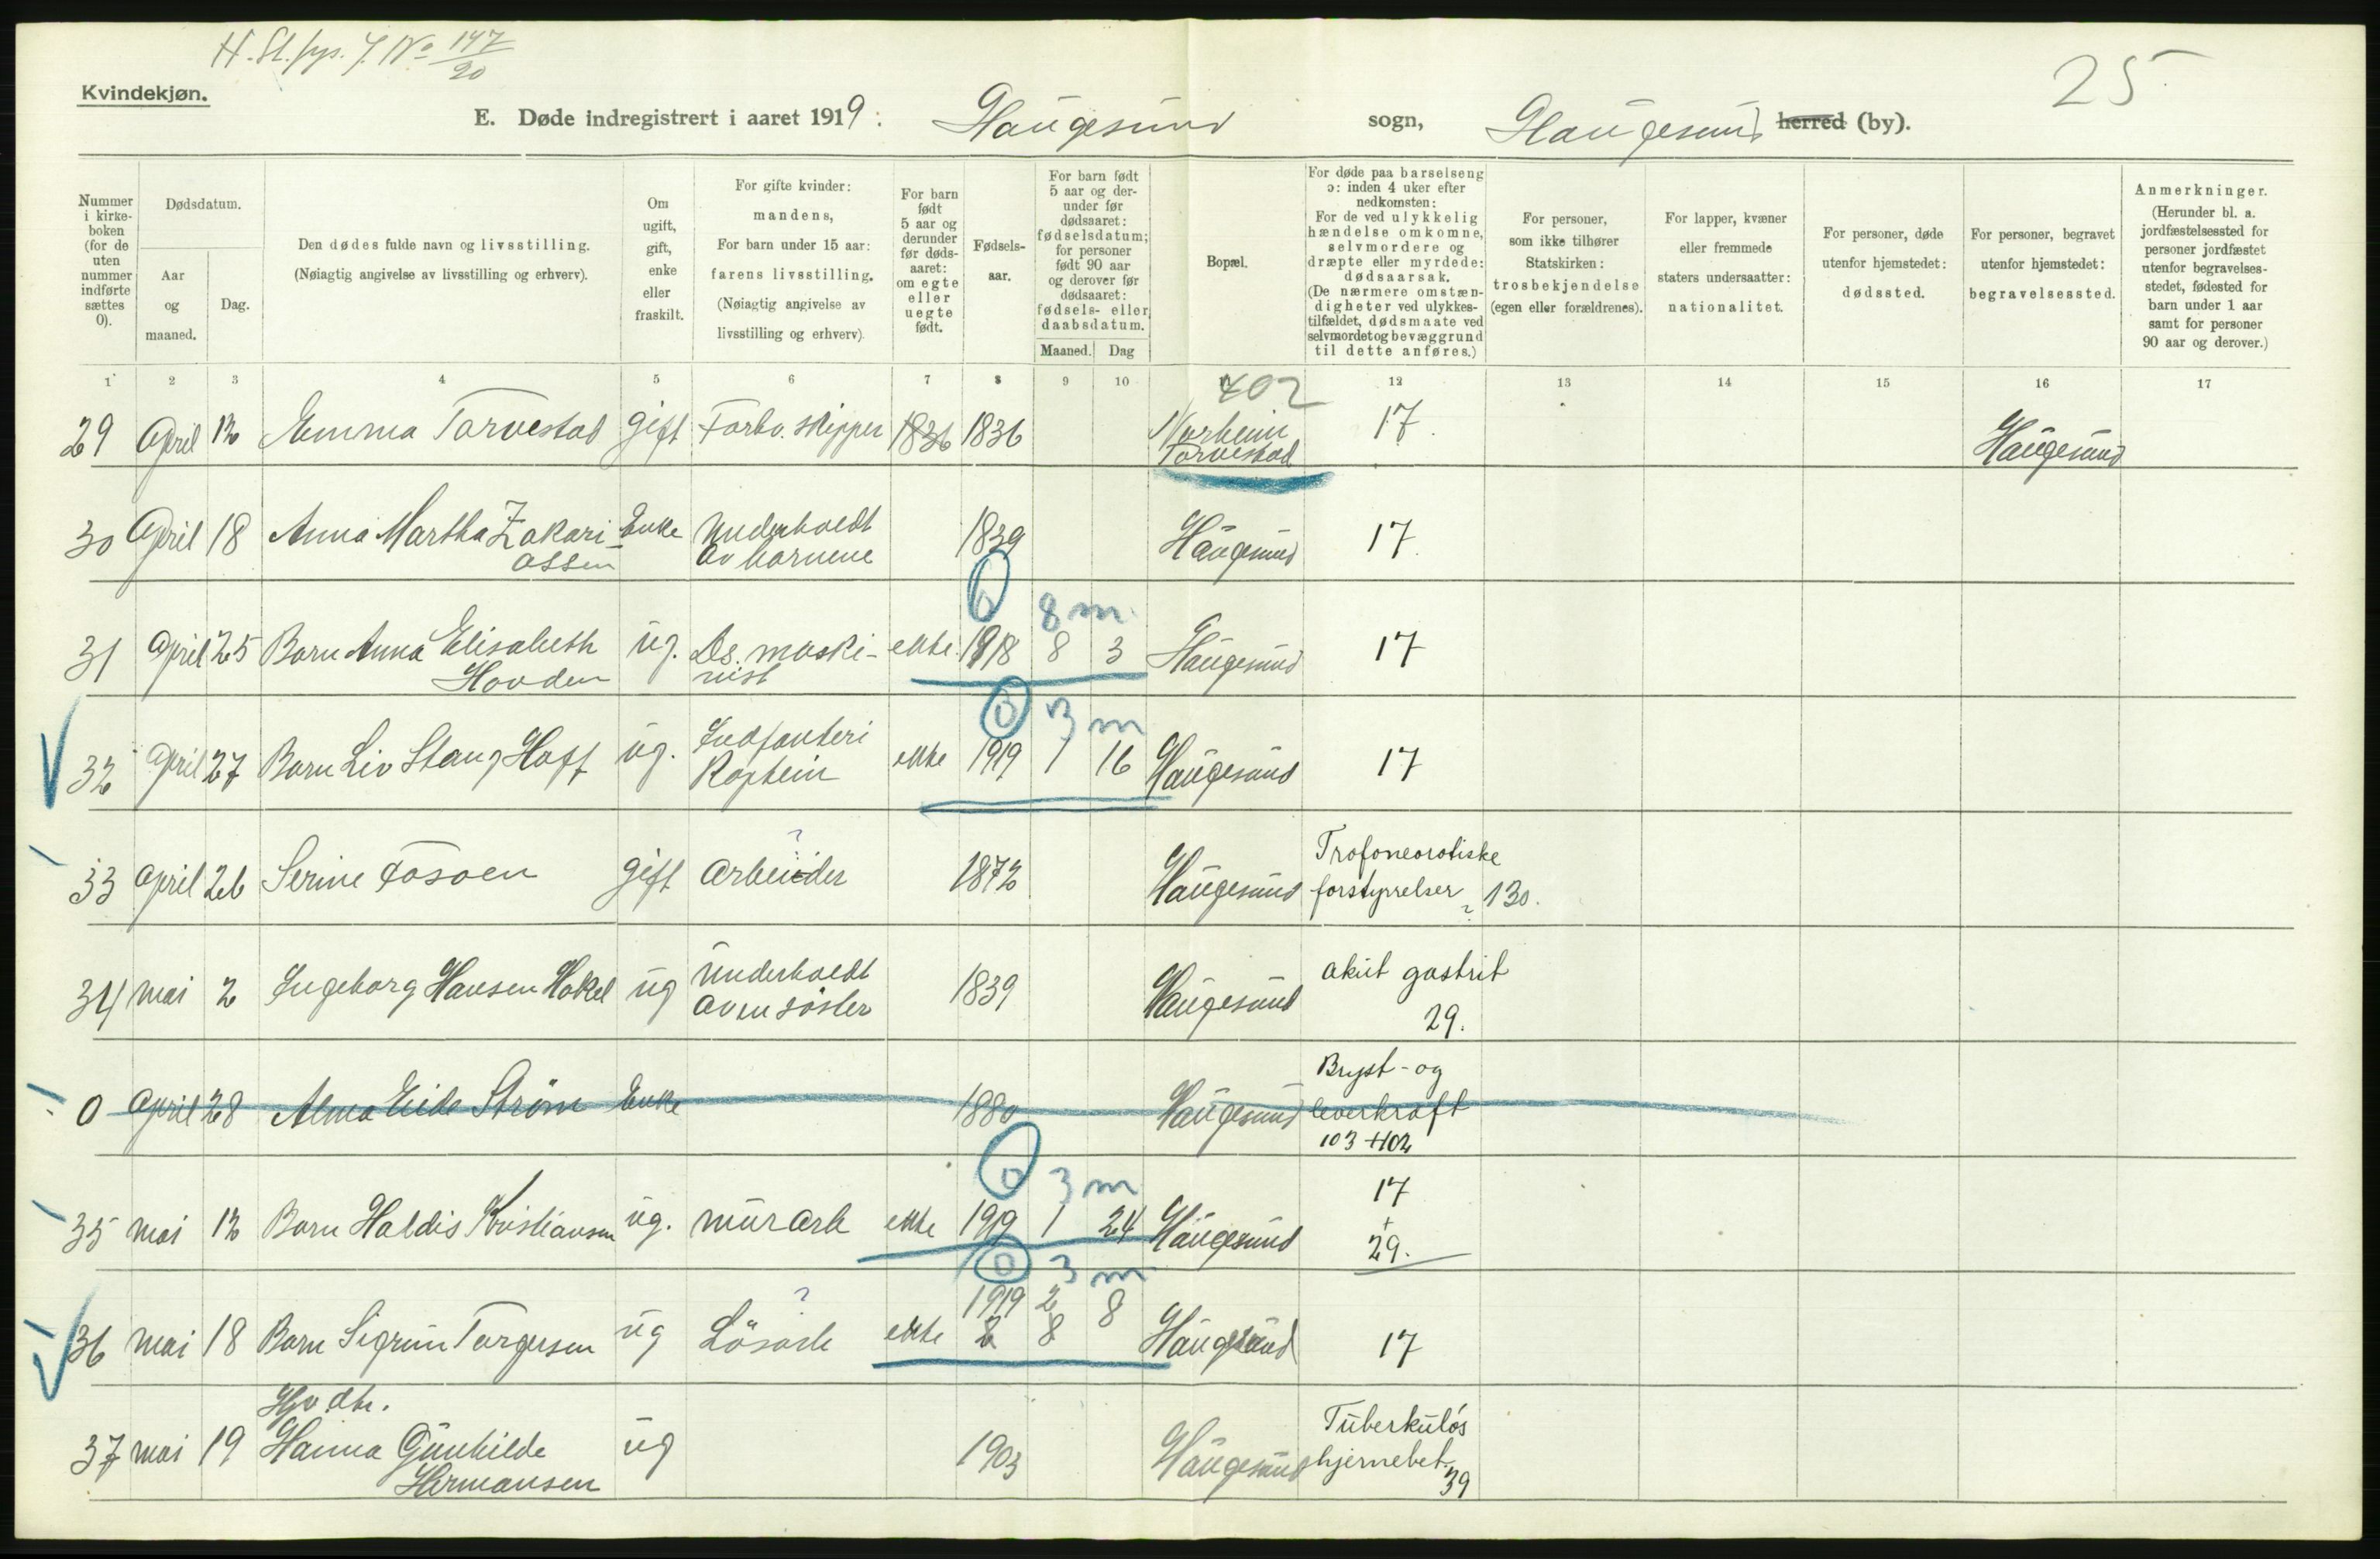 H. St. fys. J. No 147/20
25
Kvindekjøn.
E. Døde indregistrert i aaret 1919. Haugesund sogn, Haugesund herred (by).
Nummer i kirkeboken (for de uten nummer indførte sættes 0).
Dødsdatum.
Aar og maaned.
Dag.
Den dødes fulde navn og livsstilling.
(Nøiagtig angivelse av livsstilling og erhverv).
Om ugift, gift, enke eller fraskilt.
For gifte kvinder: mandens,
For barn under 15 aar: farens livsstilling.
(Nøiagtig angivelse av livsstilling og erhverv).
For barn født 5 aar og derunder før dødsaaret: om egte eller uegte født.
Fødselsaar.
For barn født 5 aar og derunder før dødsaaret: fødselsdatum; for personer født 90 aar og derover før dødsaaret: fødsels- eller daabsdatum.
Maaned. Dag
Bopæl.
For døde paa barselseng ɔ: inden 4 uker efter nedkomsten:
For de ved ulykkelig hændelse omkomne, selvmordere og dræpte eller myrdede: dødsaarsak.
(De nærmere omstændigheter ved ulykkestilfældet, dødsmaate ved selvmordet og bevæggrund til dette anføres.)
For personer, som ikke tilhører Statskirken: trosbekjendelse (egen eller forældrenes).
For lapper, kvæner eller fremmede staters undersaatter: nationalitet.
For personer, døde utenfor hjemstedet: dødssted.
For personer, begravet utenfor hjemstedet: begravelsessted.
Anmerkninger.
(Herunder bl. a. jordfæstelsessted for personer jordfæstet utenfor begravelsesstedet, fødested for barn under 1 aar samt for personer 90 aar og derover.)
1 2 3 4 5 6 7 8 9 10 11 12 13 14 15 16 17
402
29 April 12 Emma Torvestad gift Forhv. skipper 1836 1836 Norheim Torvestad 17. Haugesund
30 April 18 Anna Martha Zakariassen Enke Underholdt av barnene 1839 Haugesund 17.
0 8 m.
31 April 25 Barn Anna Elisabeth Hovden ug. Ds. maskinist ekte 1918 8 3 Haugesund 17
0 3 m
32 April 27 Barn Liv Stang Hoff ug. Indfanteri Kaptein ekte 1919 1 16 Haugesund 17
33 April 26 Serine Fosoen gift Arbeider ? 1872 Haugesund Trofoneorotiske forstyrrelser ? 130.
34 Mai 2 Ingeborg Hansen Hakel ug Underholdt av en søster 1839 Haugesund akut gastrit 29.
0 April 28 Alma Eide Strøm Enke 1880 Haugesund Bryst- og leverkræft 103 + 102
0 3 m
35 Mai 12 Barn Haldis Kristiansen ug. murarb ekte 1919 1 24 Haugesund 17 + 29.
0 3 m
36 Mai 18 Barn Sigrun Torgersen ug Løsarb ? ekte 1919 2 8 2 8 Haugesund 17
37 Mai 19 Hjv. dtr. Hanna Gunhilde Hermansen ug 1903 Haugesund Tuberkuløs hjernebet. 39